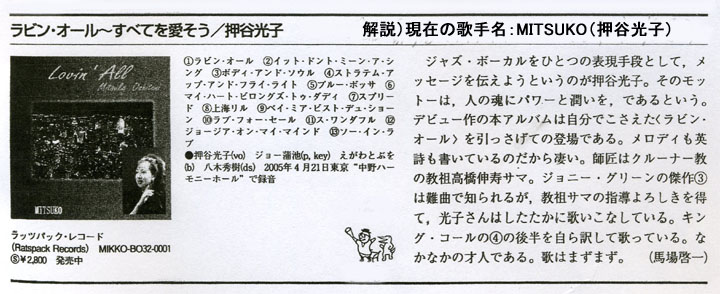 ラビン・オール〜すべてを愛そう／押谷光子
解説）現在の歌手名：MITSUKO（押谷光子）
Lovin' All
Mitsuko Oshitani
MITSUKO
ラッツパック・レコード
(Ratspack Records)　MIKKO-BO32-0001
Ⓢ¥2,800　発売中
①ラビン・オール　②イット・ドント・ミーン・ア・シ
ング　③ボディ・アンド・ソウル　④ストラテム・ア
ップ・アンド・フライ・ライト　⑤ブルー・ボッサ　⑥
マイ・ハート・ビロングズ・トゥ・ダディ　⑦スプリー
ド　⑧上海リル　⑨ベイ・ミア・ビスト・デュ・ショー
ン　⑩ラブ・フォー・セール　⑪ス・ワンダフル　⑫
ジョージア・オン・マイ・マインド　⑬ソー・イン・ラ
ブ
●押谷光子(vo)　ジョー蒲池(p, key)　えがわとぶを
(b)　八木秀樹(ds)　2005年4月21日東京“中野ハー
モニーホール”で録音
ジャズ・ボーカルをひとつの表現手段として，メ
ッセージを伝えようというのが押谷光子。そのモッ
トーは，人の魂にパワーと潤いを，であるという。
デビュー作の本アルバムは自分でこさえた〈ラビン・
オール〉を引っさげての登場である。メロディも英
詩も書いているのだから凄い。師匠はクルーナー教
の教祖高橋伸寿サマ。ジョニー・グリーンの傑作③
は難曲で知られるが，教祖サマの指導よろしきを得
て，光子さんはしたたかに歌いこなしている。キン
グ・コールの④の後半を自ら訳して歌っている。な
かなかの才人である。歌はまずまず。　（馬場啓一）